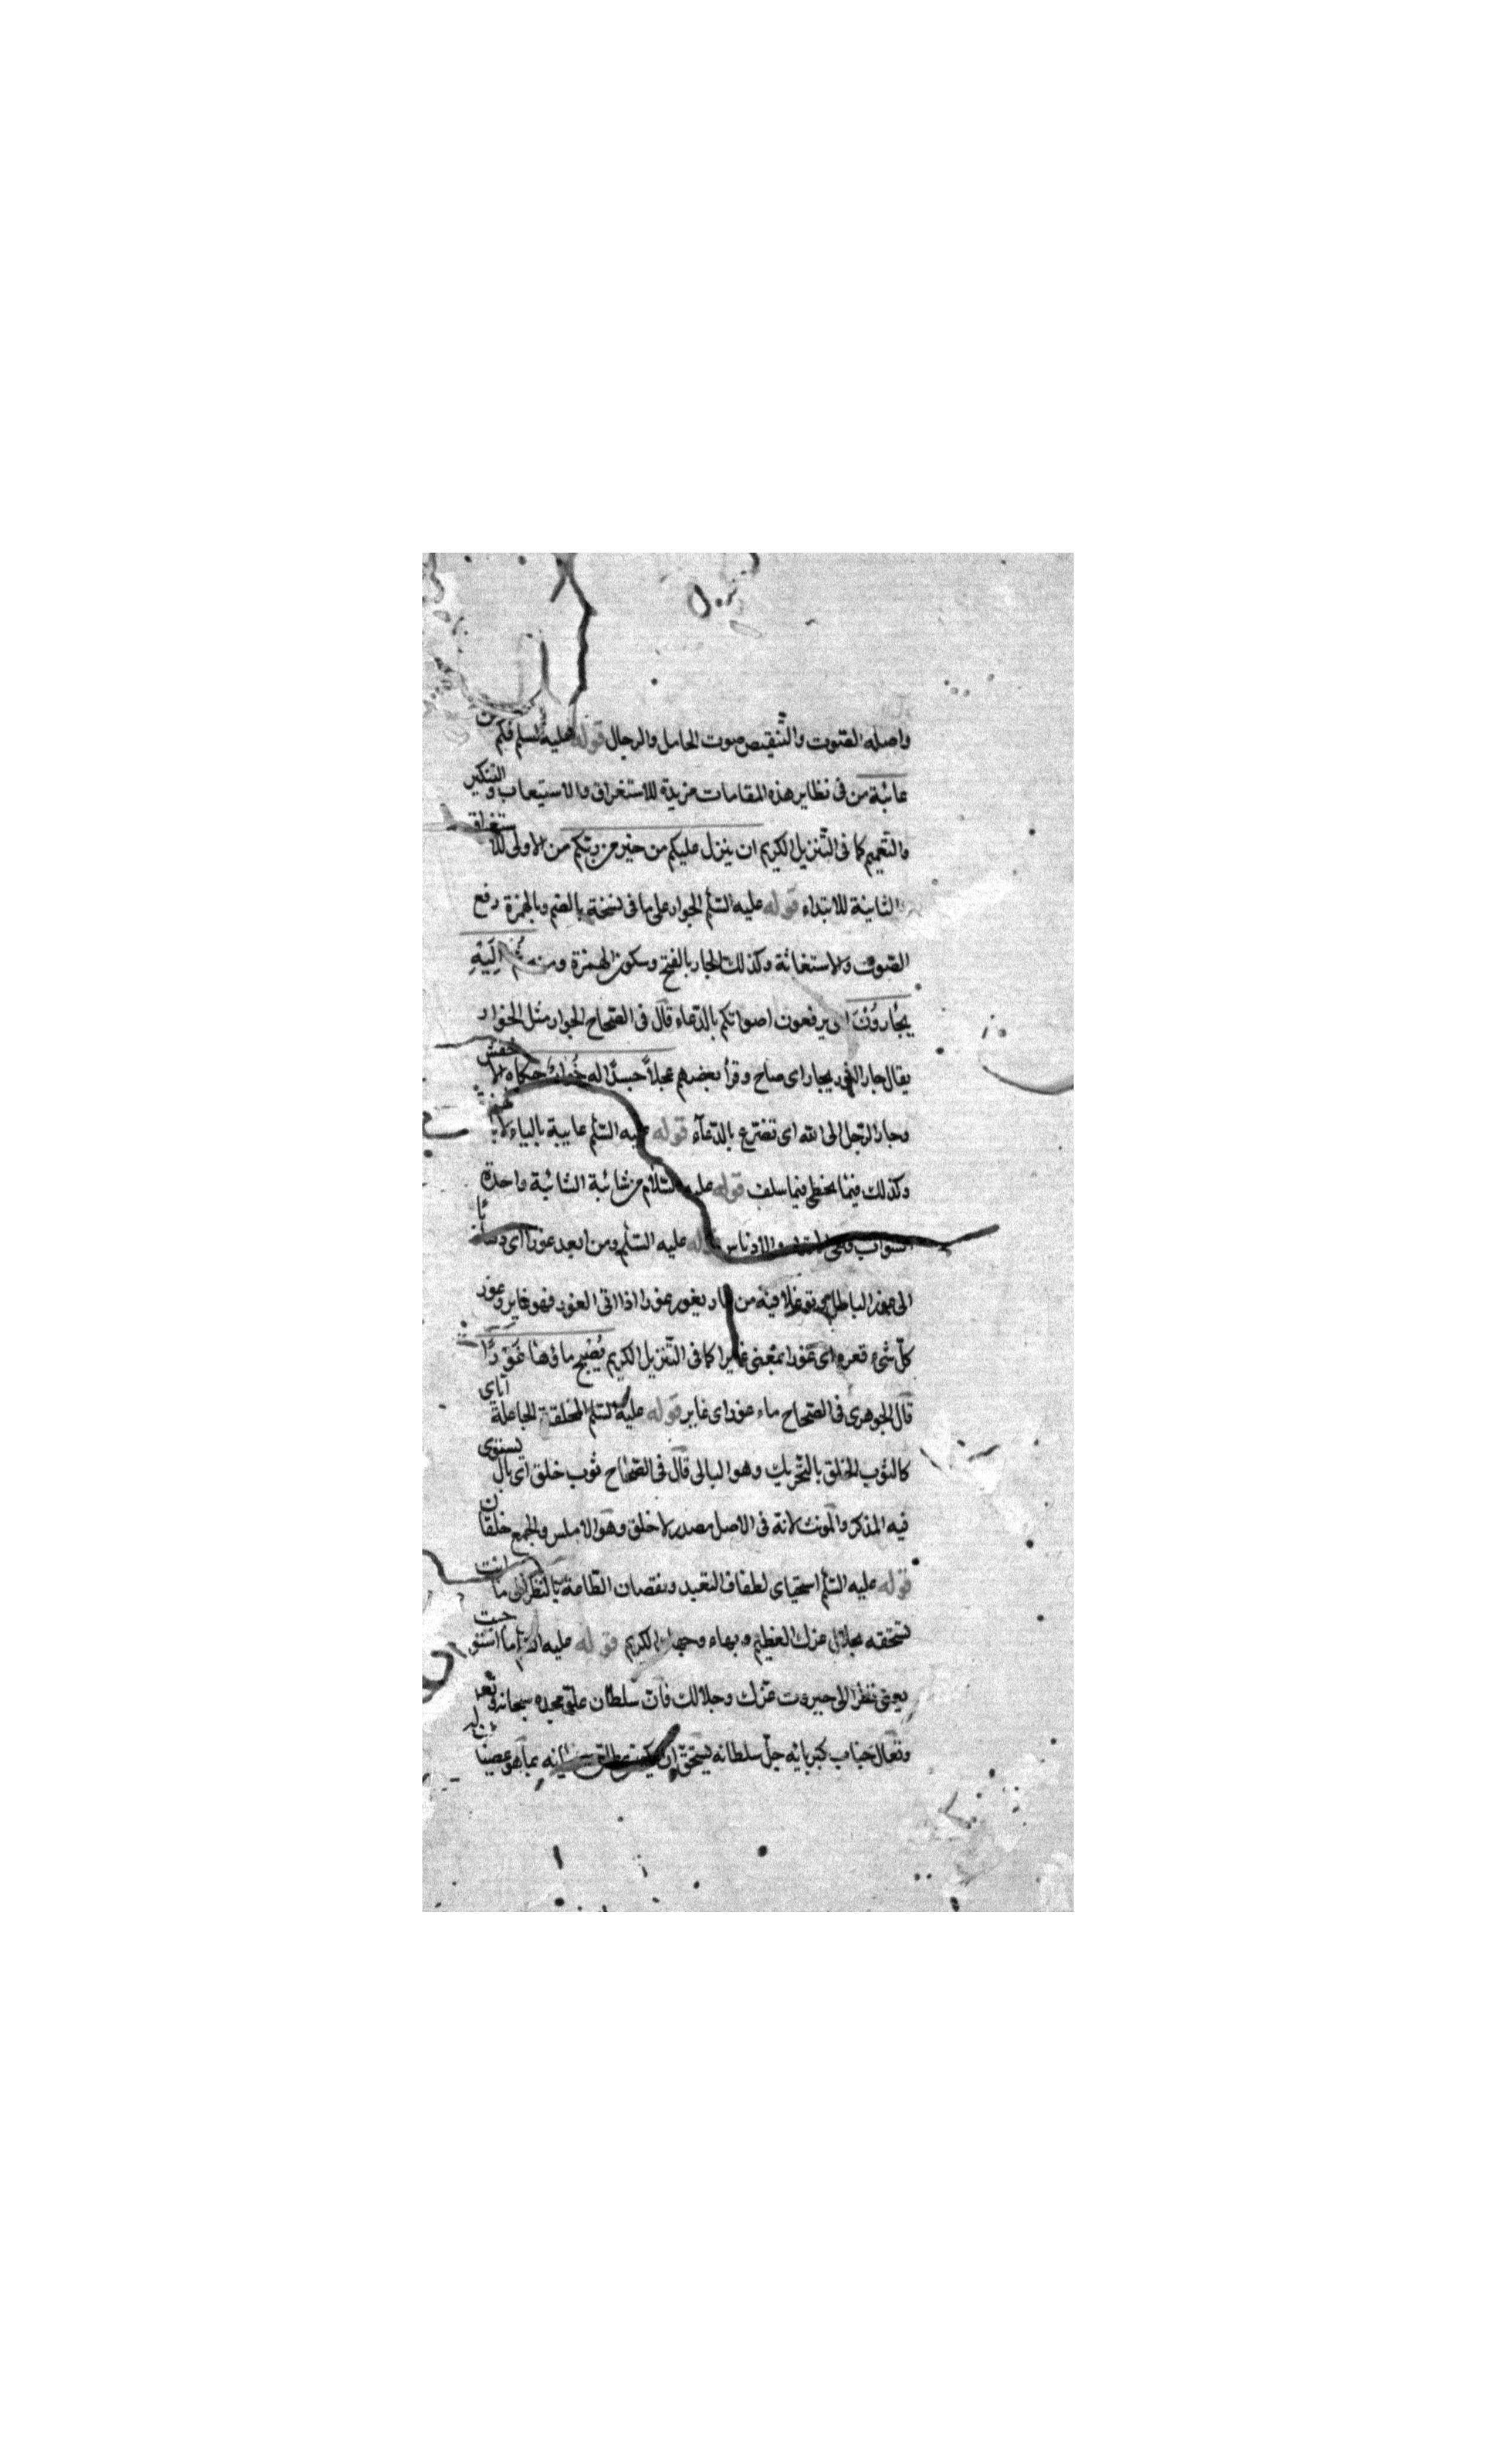 واصله الصوت والتنقيص صوت المحامل والرحال قوله عليه السلم فكم من
عائبة من فى نظاير هذه المقامات مزيدة للاستغراق والاستيعاب والتنكير
والتعميم كما فى التنزيل الكريم ان ينزل عليكم من خير من ربكم من الاولى للاستغراق
والثانية للابتداء قوله عليه السلم الجوار على ما فى نسخة بالضم وبالهمزة رفع
الصوت والاستغاثة وكذلك الجار بالفتح وسكون الهمزة ومنه ثم اليه
يجارون اى يرفعون اصواتكم بالدعاء قال فى الصحاح الجوار مثل الخوار
يقال جار الثور يجار اى صاح وقرأ بعضهم عجلاً جسدًا له جوار حكاه الاخفش
وجار الرجل الى الله اى تضرع بالدعآء قوله عليه السلم عايبة بالياء لا بالهمزة
وكذلك فيما بخط فيما سلف قوله عليه السلام من شائبة الشائبة واحدة
الشوايب وهى الادناس قوله عليه السلم ومن ابعد غورا اى
الى غور الباطل وتوغلا فيه من غار يغور غورا اذا اتى الغور فهو غاير وغور
كل شىء قعره اى غورا بمعنى غايرا كما فى التنزيل الكريم يصبح ماؤها غورًا
قال الجوهرى فى الصحاح ماء غور اى غاير قوله عليه السلم المخلقة الجاعلة اياى
كالثوب الخلق بالتحريك وهو البالى قال فى الصحاح ثوب خلق اى بال يستوى
فيه المذكر والمونث لانه فى الاصل مصدر الاخلق وهو الاملس والجمع خلقان
قوله عليه السلم استحياى لطفاف التعبد ونقصان الطاعة بالنظر الى ما انت
تستحقه بجلال عزك العظيم وبهاء وجهك الكريم قوله عليه السلم ما استوجبت
يعنى نظرا الى جبروت عزك وجلالك فان سلطان علو مجده سبحانه
وتعال جناب كبريائه جل سلطانه يستحق ان